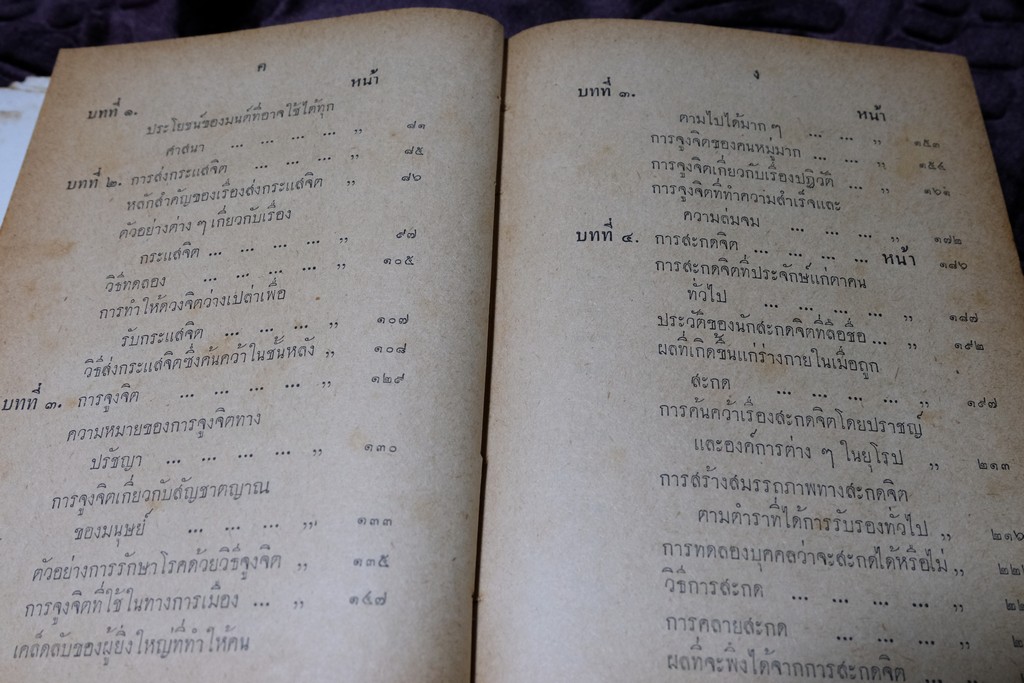 ค
หน้า
บทที่ ๑.
ประโยชน์ของมนต์ที่อาจใช้ได้ทุก
ศาสนา ... ... ... ,, ๘๑
บทที่ ๒. การส่งกระแสจิต ... ... ... ,, ๘๕
หลักสำคัญของเรื่องส่งกระแสจิต ,, ๘๖
ตัวอย่างต่าง ๆ เกี่ยวกับเรื่อง
กระแสจิต ... ... ... ... ,, ๙๗
วิธีทดลอง ... ... ... ... ,, ๑๐๕
การทำให้ดวงจิตว่างเปล่าเพื่อ
รับกระแสจิต ... ... ... ,, ๑๐๗
วิธีส่งกระแสจิตซึ่งค้นคว้าในชั้นหลัง ,, ๑๐๘
บทที่ ๓. การจูงจิต ... ... ... ... ,, ๑๒๙
ความหมายของการจูงจิตทาง
ปรัชญา ... ... ... ... ,, ๑๓๐
การจูงจิตเกี่ยวกับสัญชาตญาณ
ของมนุษย์ ... ... ... ,, ๑๓๓
ตัวอย่างการรักษาโรคด้วยวิธีจูงจิต ,, ๑๓๕
การจูงจิตที่ใช้ในทางการเมือง ... ,, ๑๔๗
เคล็ดลับของผู้ยิ่งใหญ่ที่ทำให้คน
ง
บทที่ ๓. หน้า
ตามไปได้มาก ๆ ... ... ,, ๑๕๓
การจูงจิตของคนหมู่มาก ... ... ,, ๑๕๔
การจูงจิตเกี่ยวกับเรื่องปฏิวัติ ... ,, ๑๖๑
การจูงจิตที่ทำความสำเร็จและ
ความล่มจม ... ... ... ,, ๑๗๒
บทที่ ๔. การสะกดจิต ... ... ... ... หน้า ๑๘๖
การสะกดจิตที่ประจักษ์แก่ตาคน
ทั่วไป ... ... ... ... ,, ๑๘๗
ประวัติของนักสะกดจิตที่ลือชื่อ ... ,, ๑๙๒
ผลที่เกิดขึ้นแก่ร่างกายในเมื่อถูก
สะกด ... ... ... ... ,, ๑๙๗
การค้นคว้าเรื่องสะกดจิตโดยปราชญ์
และองค์การต่าง ๆ ในยุโรป ,, ๒๑๓
การสร้างสมรรถภาพทางสะกดจิต
ตามตำราที่ได้การรับรองทั่วไป ,, ๒๑๖
การทดลองบุคคลว่าจะสะกดได้หรือไม่ ,,
วิธีการสะกด ... ... ... ... ,,
การคลายสะกด ... ... ... ,,
ผลที่จะพึงได้จากการสะกดจิต ... ,,